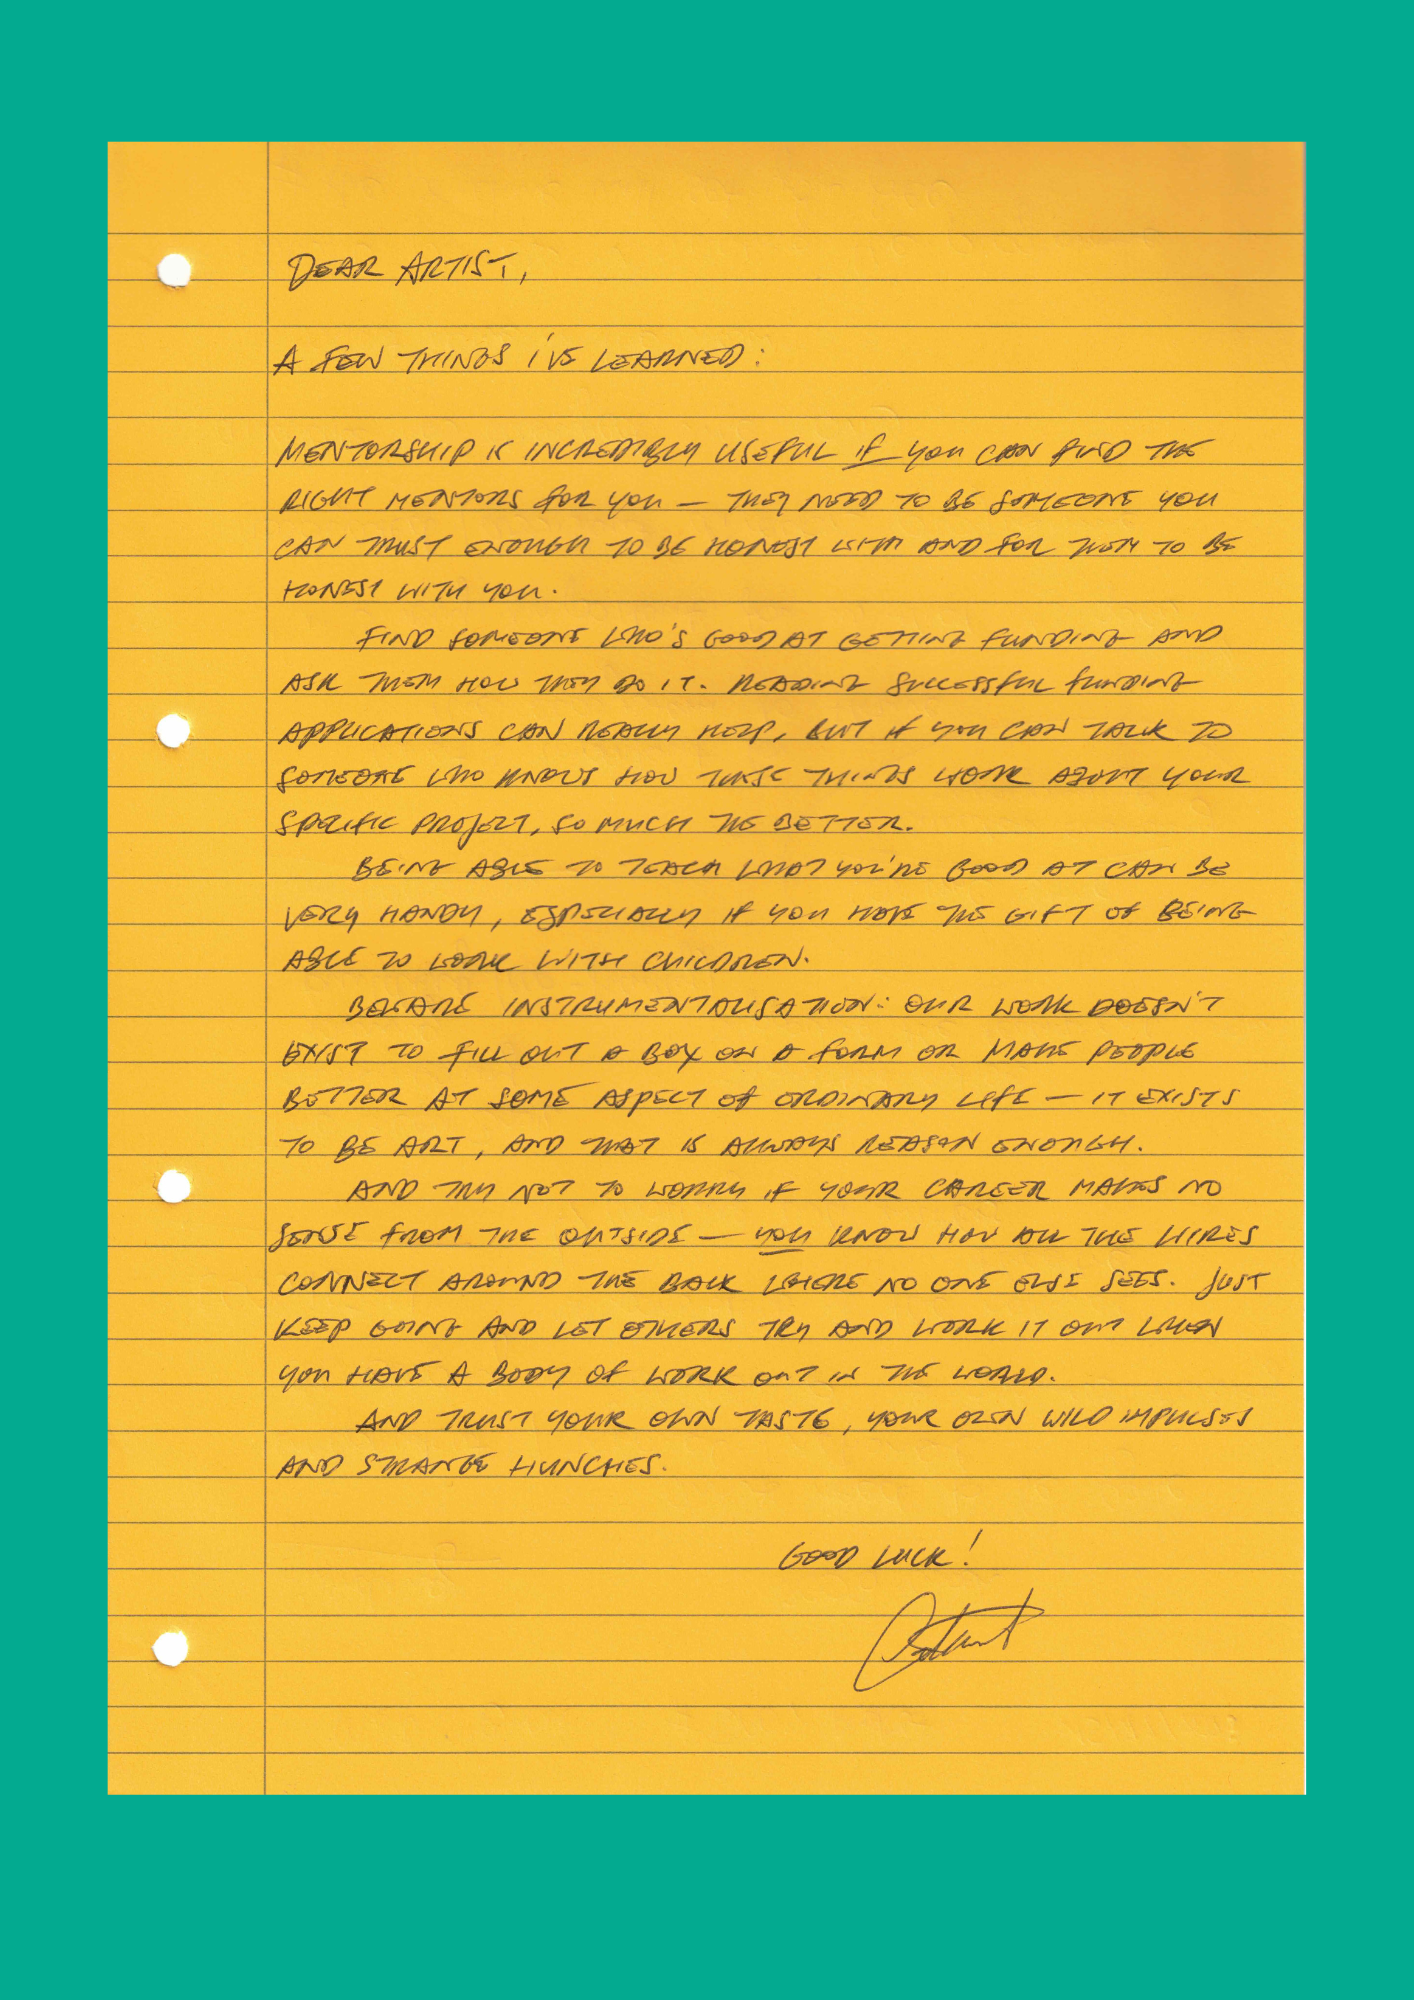 DEAR ARTIST,
A FEW THINGS I'VE LEARNED:
MENTORSHIP IS INCREDIBLY USEFUL IF YOU CAN FIND THE
RIGHT MENTORS FOR YOU — THEY NEED TO BE SOMEONE YOU
CAN TRUST ENOUGH TO BE HONEST WITH AND FOR THEM TO BE
HONEST WITH YOU.
FIND SOMEONE WHO'S GOOD AT GETTING FUNDING AND
ASK THEM HOW THEY DO IT. READING SUCCESSFUL FUNDING
APPLICATIONS CAN REALLY HELP, BUT IF YOU CAN TALK TO
SOMEONE WHO KNOWS HOW THESE THINGS WORK ABOUT YOUR
SPECIFIC PROJECT, SO MUCH THE BETTER.
BEING ABLE TO TEACH WHAT YOU'RE GOOD AT CAN BE
VERY HANDY, ESPECIALLY IF YOU HAVE THE GIFT OF BEING
ABLE TO WORK WITH CHILDREN.
BEWARE INSTRUMENTALISATION: OUR WORK DOESN'T
EXIST TO FILL OUT A BOX ON A FORM OR MAKE PEOPLE
BETTER AT SOME ASPECT OF ORDINARY LIFE — IT EXISTS
TO BE ART, AND THAT IS ALWAYS REASON ENOUGH.
AND TRY NOT TO WORRY IF YOUR CAREER MAKES NO
SENSE FROM THE OUTSIDE — YOU KNOW HOW ALL THE WIRES
CONNECT AROUND THE BACK WHERE NO ONE ELSE SEES. JUST
KEEP GOING AND LET OTHERS TRY AND WORK IT OUT WHEN
YOU HAVE A BODY OF WORK OUT IN THE WORLD.
AND TRUST YOUR OWN TASTE, YOUR OWN WILD IMPULSES
AND STRANGE HUNCHES.
GOOD LUCK!